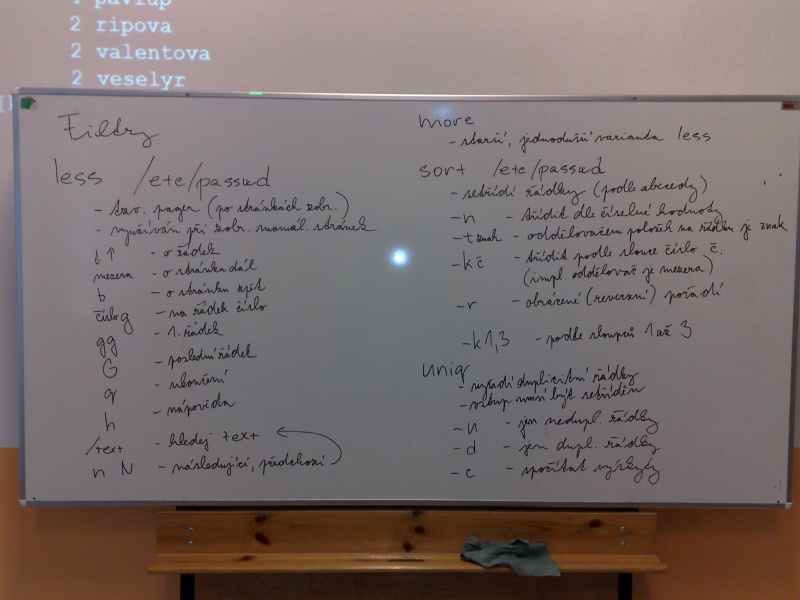 2 ripova
2 valentova
2 veselyr
Filtry
less /etc/passwd
- tzv. pager (po stránkách zobr.)
- využíván při zobr. manuál. stránek
↓ ↑ - o řádek
mezera - o stránku dál
b - o stránku zpět
číslo g - na řádek číslo
gg - 1. řádek
G - poslední řádek
q - ukončení
h - nápověda
/text - hledej text
n N - následující, předchozí
more
- starší, jednodušší varianta less
sort /etc/passwd
- setřídí řádky (podle abecedy)
-n - třídit dle číselné hodnoty
-t znak - oddělovačem položek na řádku je znak
-k č - třídit podle sloupce číslo č.
(impl. oddělovač je mezera)
-r - obrácené (reverzní) pořadí
-k1,3 - podle sloupců 1 až 3
uniq
- vyřadí duplicitní řádky
- vstup musí být setříděn
-u - jen nedupl. řádky
-d - jen dupl. řádky
-c - spočítat výskyty